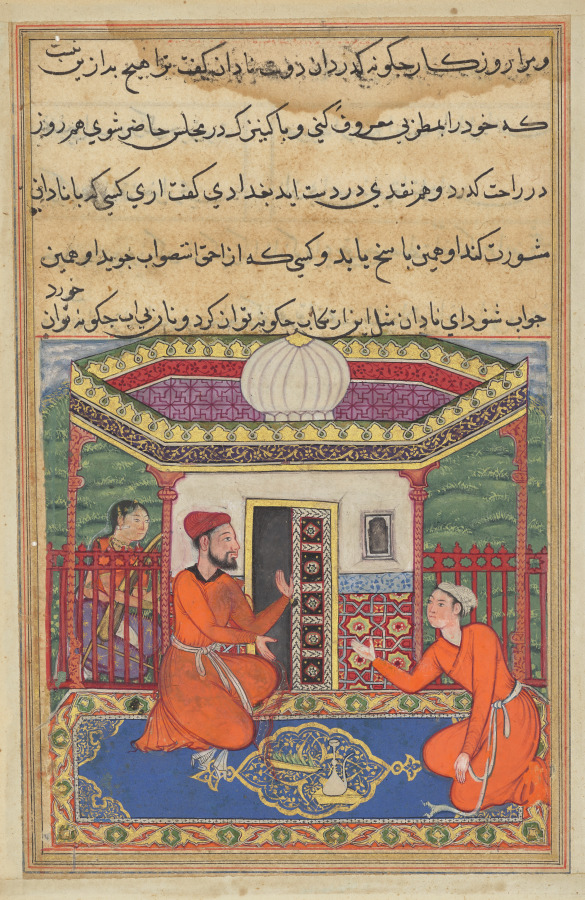 و برا روز کار چگونه کدرد ان دوست نادان گفت ترا هیچ بد ازین نیست
که خود را بمطربی معروف کنی و با کنیزک در مجلس حاضر شوی هم روز
در راحت کدرد و هم نقدی در دست اید بغدادی گفت اری کسی که با نادان
مشورت کند او همین پاسخ یابد و کسی که از احمق صواب جوید او همین
خورد
جواب شنود ای نادان مثل این ارتکاب چگونه توان کرد و نان زین باب چگونه توان